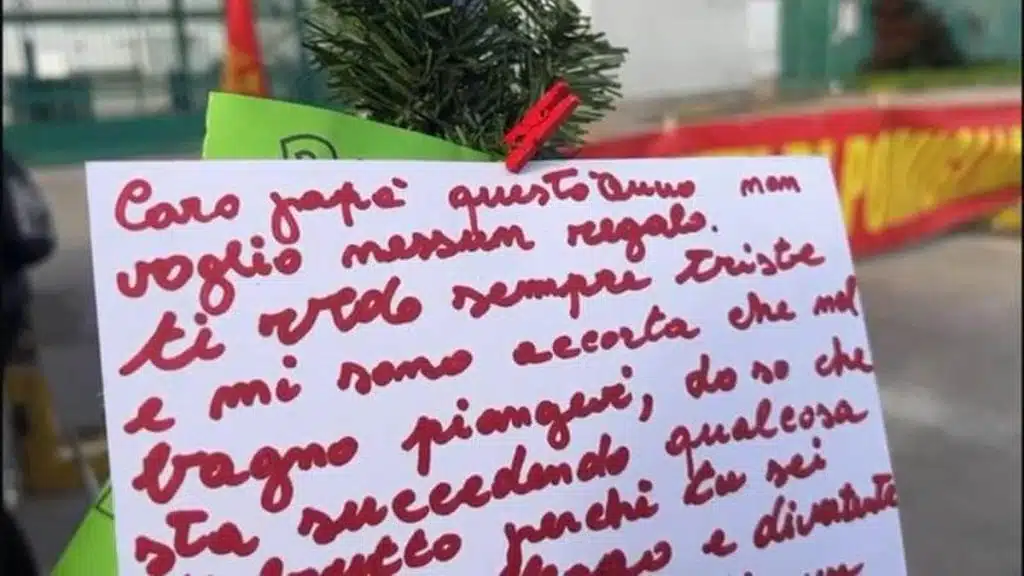 Caro papà quest'anno non
voglio nessun regalo.
ti vedo sempre triste
e mi sono accorta che nel
bagno piangevi, lo so che
sta succedendo qualcosa
brutto perché tu sei
e divertente